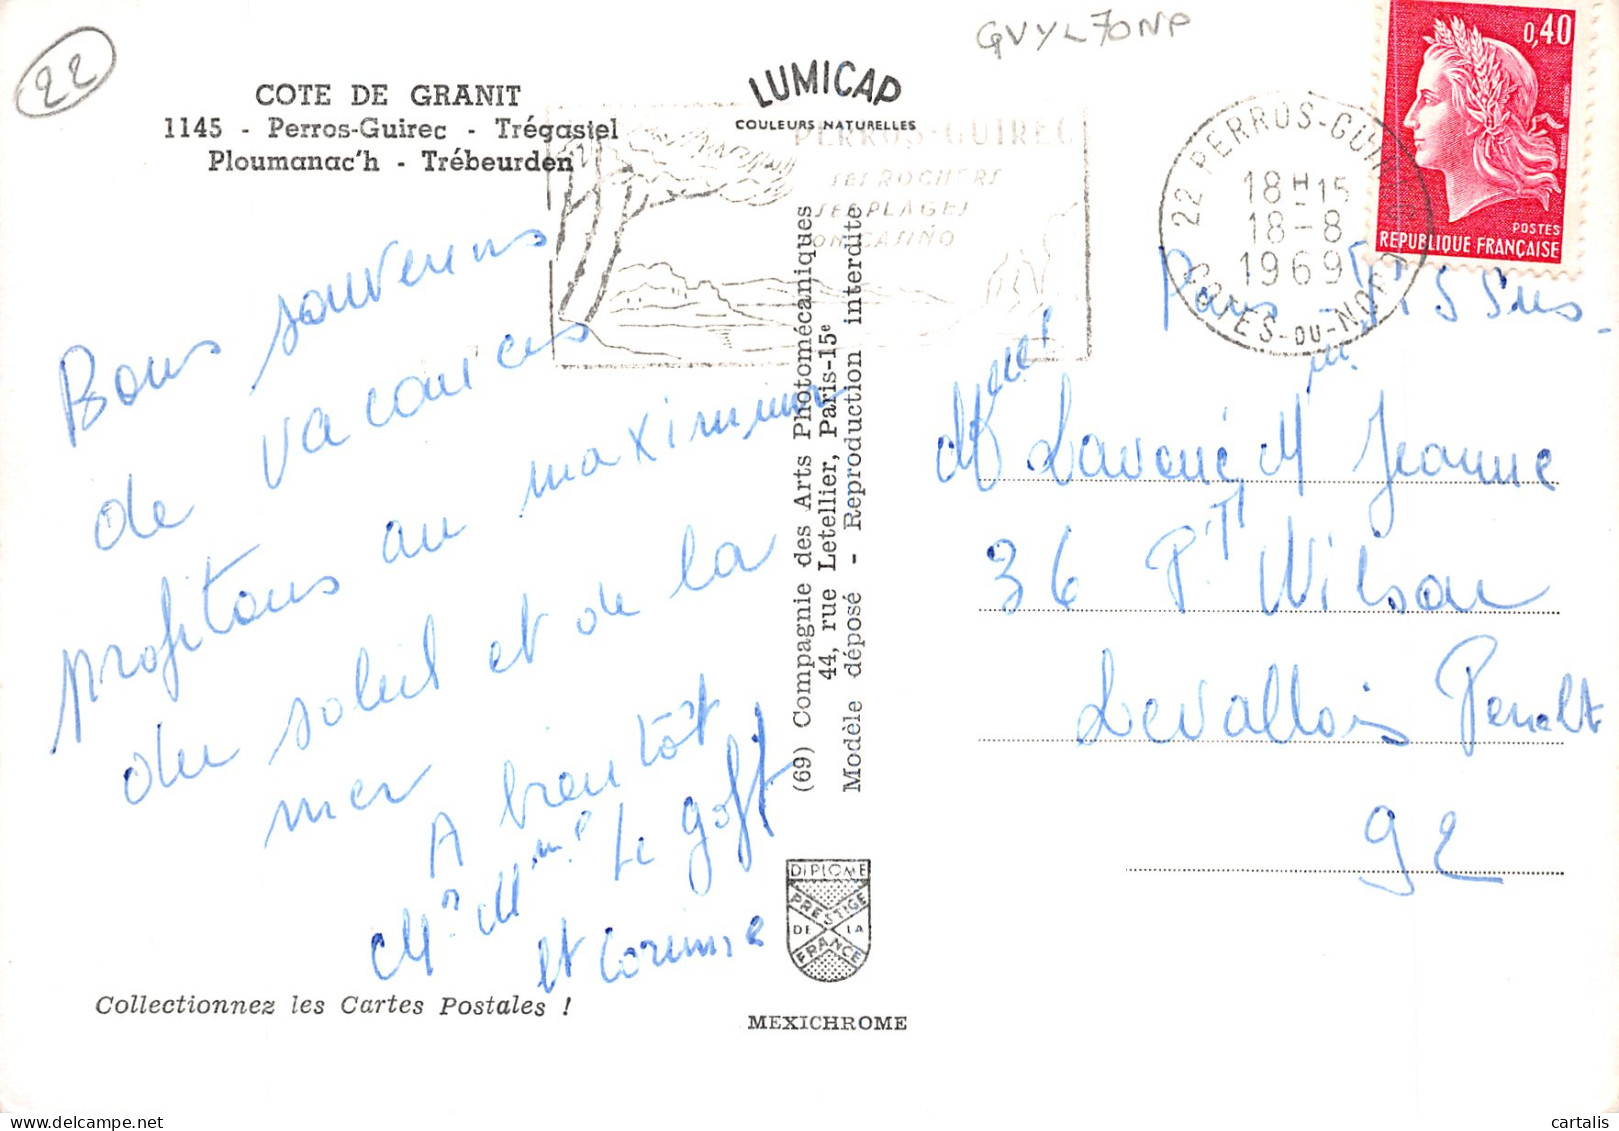 22
GVYL70NP
COTE DE GRANIT
1145 - Perros-Guirec - Trégastel
Ploumanac'h - Trébeurden
LUMICAP
COULEURS NATURELLES
PERROS-GUIREC
SES ROCHERS
SES PLAGES
SON CASINO
22 PERROS-GUIREC
18H15
18-8
1969
COTES-DU-NORD
0,40
POSTES
REPUBLIQUE FRANÇAISE
Bons souvenirs
de vacances
profitons au maximum
du soleil et de la
mer
A bientôt
Mr Mme Le Goff
et Corinne
(69) Compagnie des Arts Photomécaniques
44, rue Letellier, Paris-15e
Modèle déposé - Reproduction interdite
Mme
Jeanne
36 Pt Wilson
Levallois Perret
92
DIPLOME
PRESTIGE
DE LA
FRANCE
Collectionnez les Cartes Postales !
MEXICHROME
cartalis